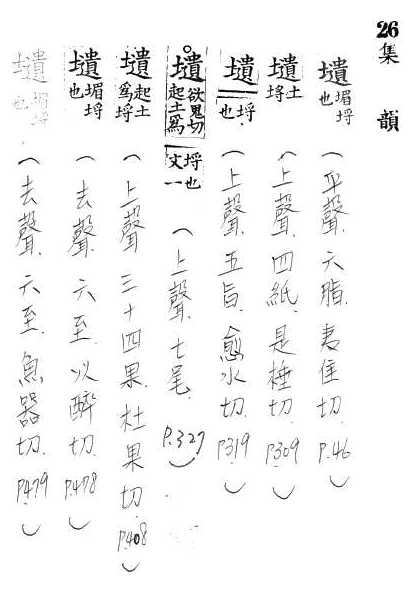 26 集 韻
壝 埓埓也 (平聲.六脂.夷隹切.P.46)
壝 土埓 (上聲.四紙.是棰切.P.309)
壝 埓也 (上聲.五旨.愈水切.P319)
壝 欲鬼切起土為埓也文一 (上聲.七尾.P.327)
壝 起土為埓 (上聲三十四果.杜果切.P.408)
壝 堳埓也 (去聲.六至.以醉切.P.478)
壝 堳埓也 (去聲.六至.魚器切.P.479)